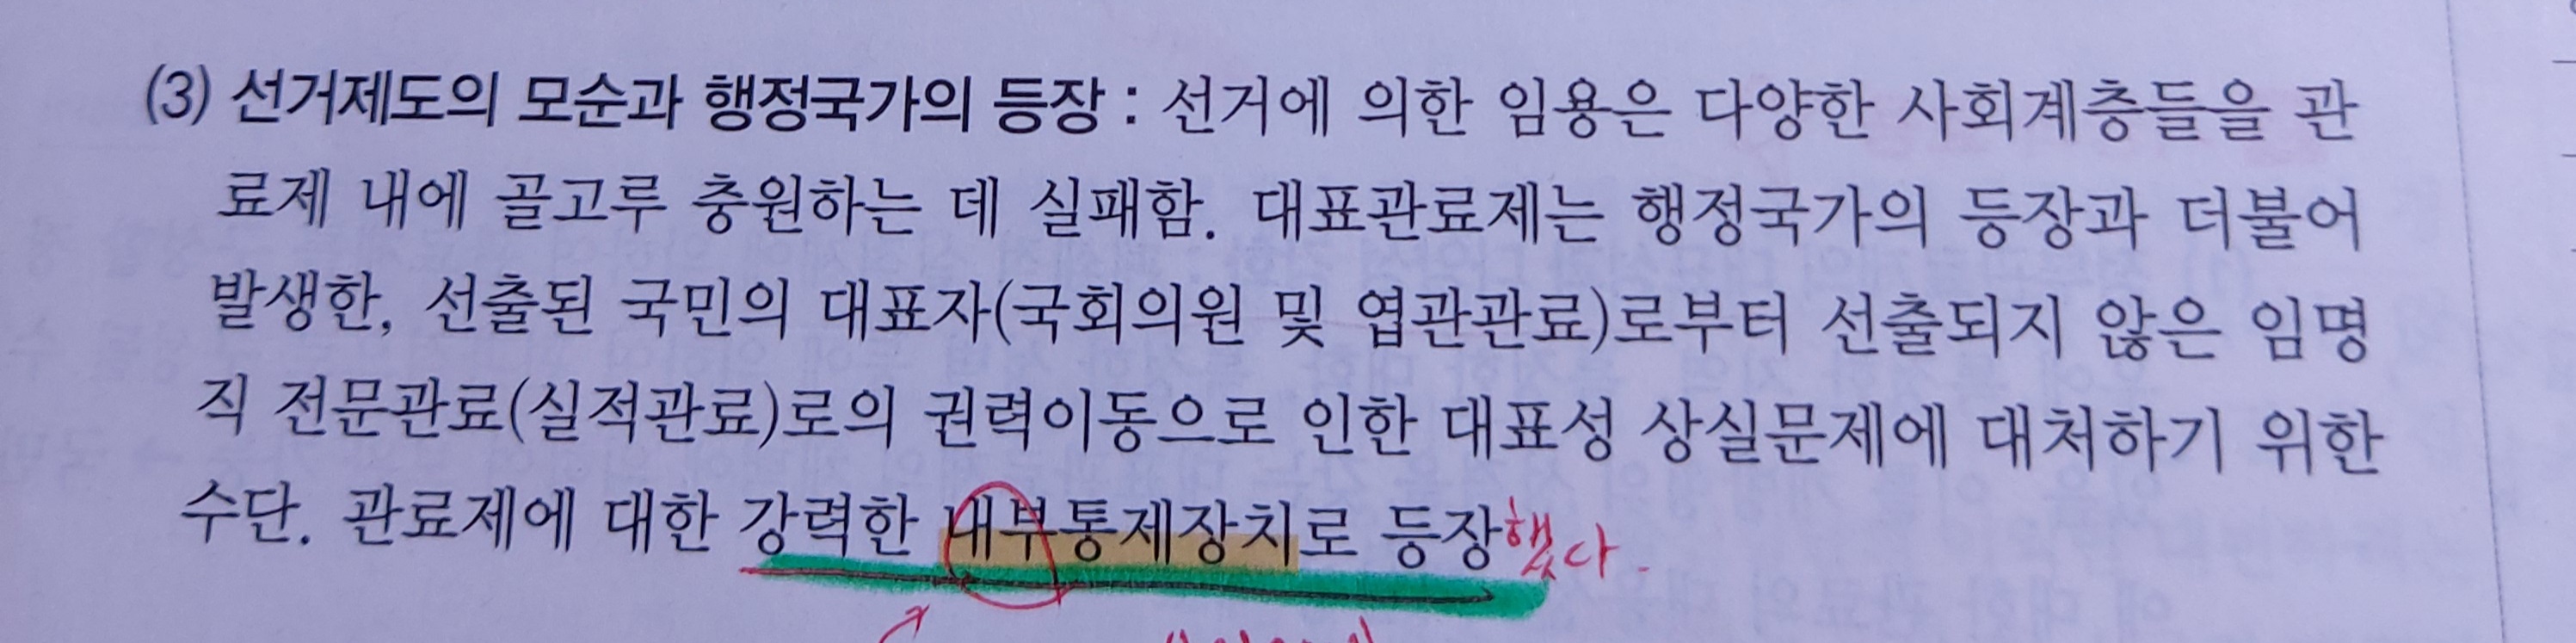 (3) 선거제도의 모순과 행정국가의 등장 : 선거에 의한 임용은 다양한 사회계층들을 관
료제 내에 골고루 충원하는 데 실패함. 대표관료제는 행정국가의 등장과 더불어
발생한, 선출된 국민의 대표자(국회의원 및 엽관관료)로부터 선출되지 않은 임명
직 전문관료(실적관료)로의 권력이동으로 인한 대표성 상실문제에 대처하기 위한
수단. 관료제에 대한 강력한 내부통제장치로 등장했다.